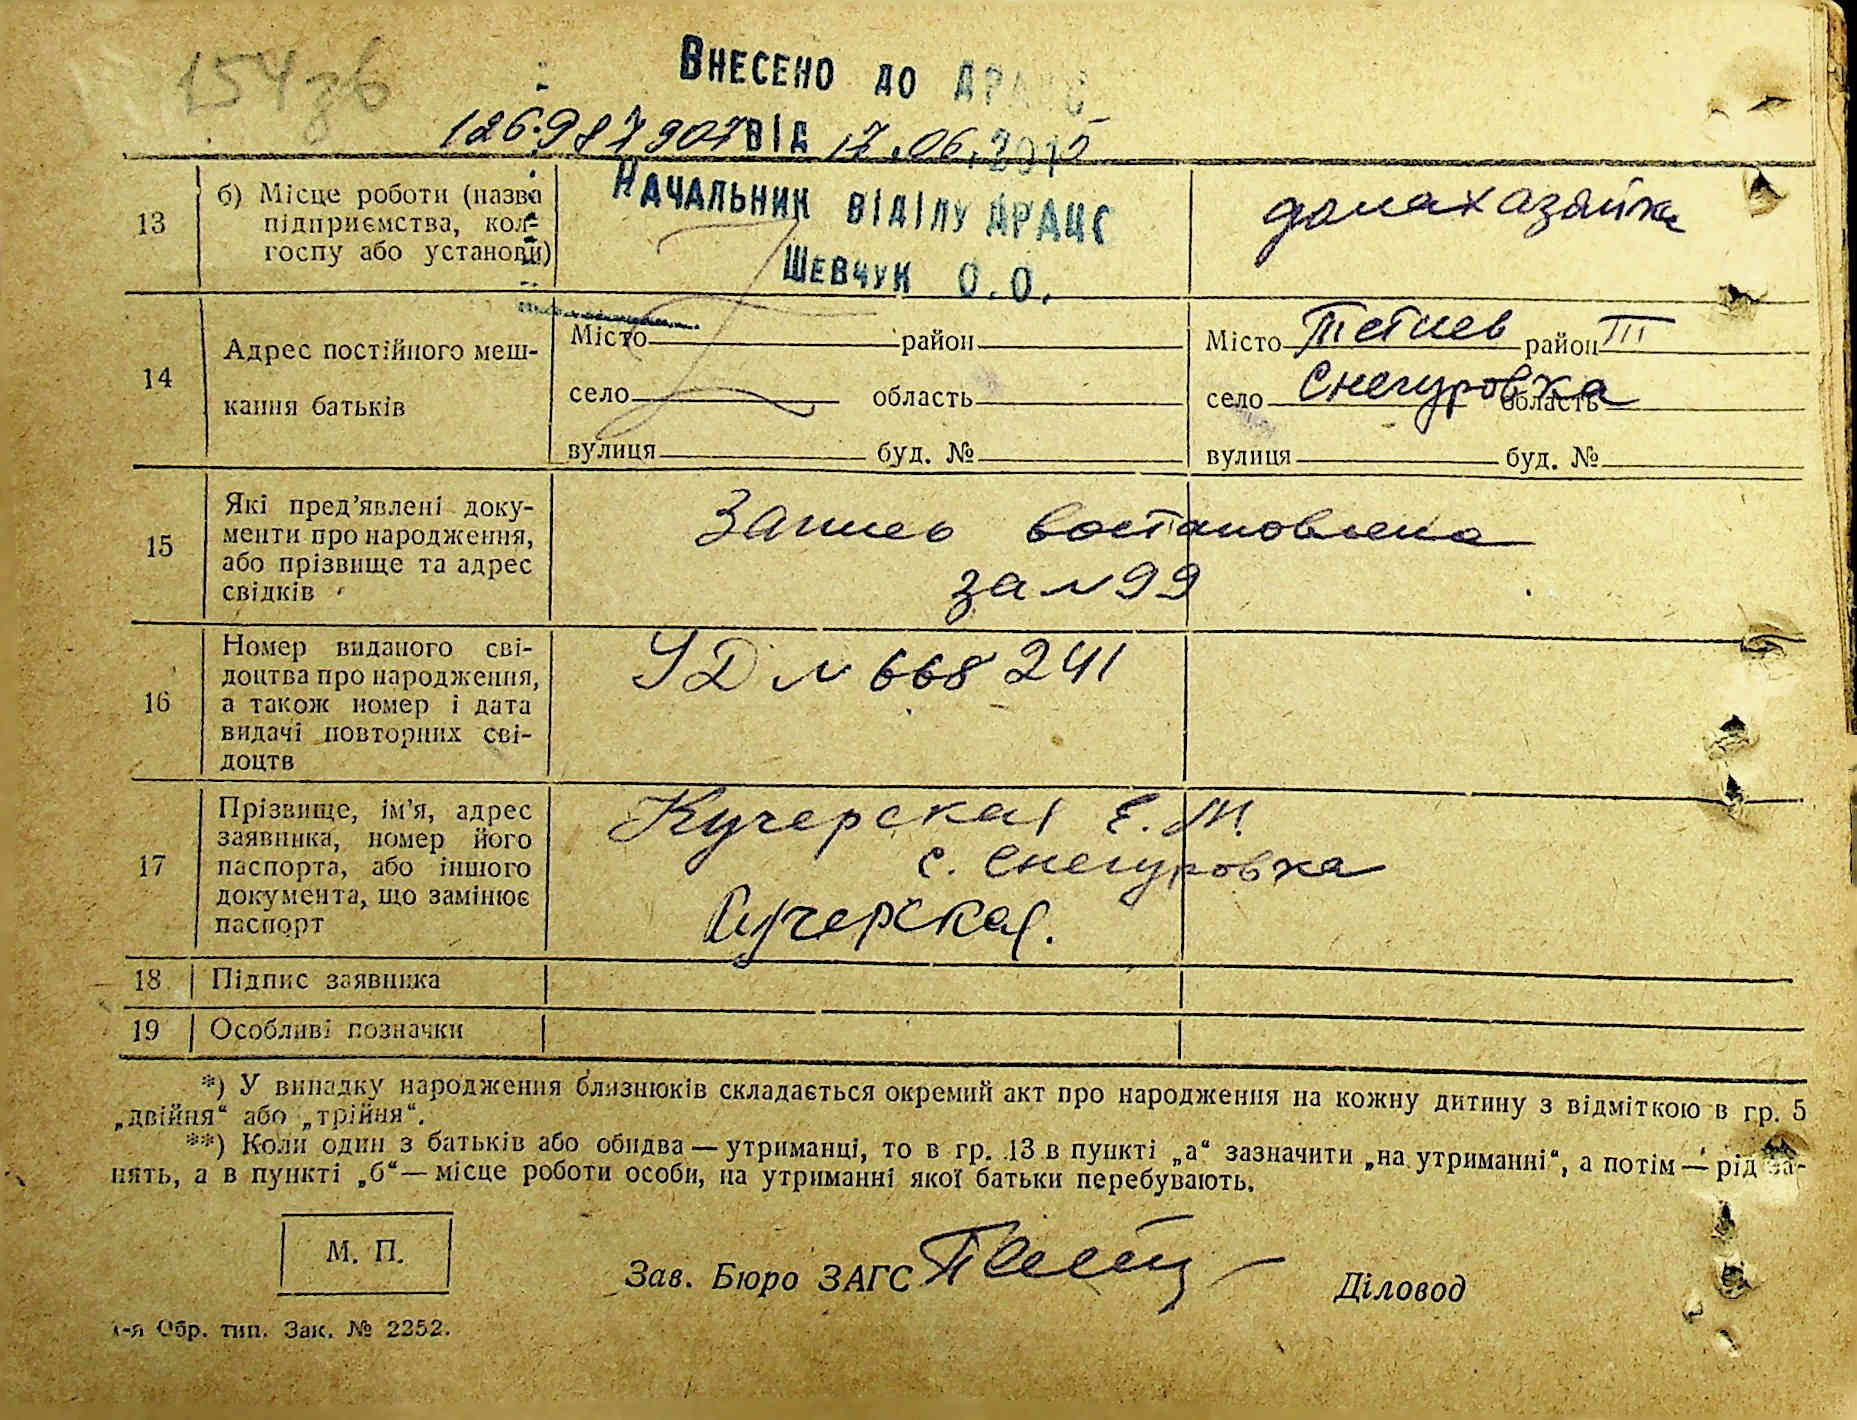 154зв
Внесено до ДРАЦС
від 17.06.2015
13
б) Місце роботи (назва
підприємства, кол-
госпу або установи)
Начальник відділу ДРАЦС
Шевчук О.О.
домахазайка
14
Адрес постійного меш-
кання батьків
Місто район
село область
вулиця буд. №
Місто Тетиев район III
село Снегуровка область
вулиця буд. №
15
Які пред’явлені доку-
менти про народження,
або прізвище та адрес
свідків
Запись востановлена
за N 99
16
Номер виданого сві-
доцтва про народження,
а також номер і дата
видачі повторних сві-
доцтв
УД N 668241
17
Прізвище, ім’я, адрес
заявника, номер його
паспорта, або іншого
документа, що замінює
паспорт
Кучерская Е. М.
с. Снегуровка
Кучерская.
18 Підпис заявника
19 Особливі позначки
*) У випадку народження близнюків складається окремий акт про народження на кожну дитину з відміткою в гр. 5
„двійня“ або „трійня“.
**) Коли один з батьків або обидва — утриманці, то в гр. 13 в пункті „а“ зазначити „на утриманні“, а потім — рід за-
нять, а в пункті „б“ — місце роботи особи, на утриманні якої батьки перебувають.
М. П.
Зав. Бюро ЗАГС
Діловод
1-я Обр. тип. Зак. № 2252.